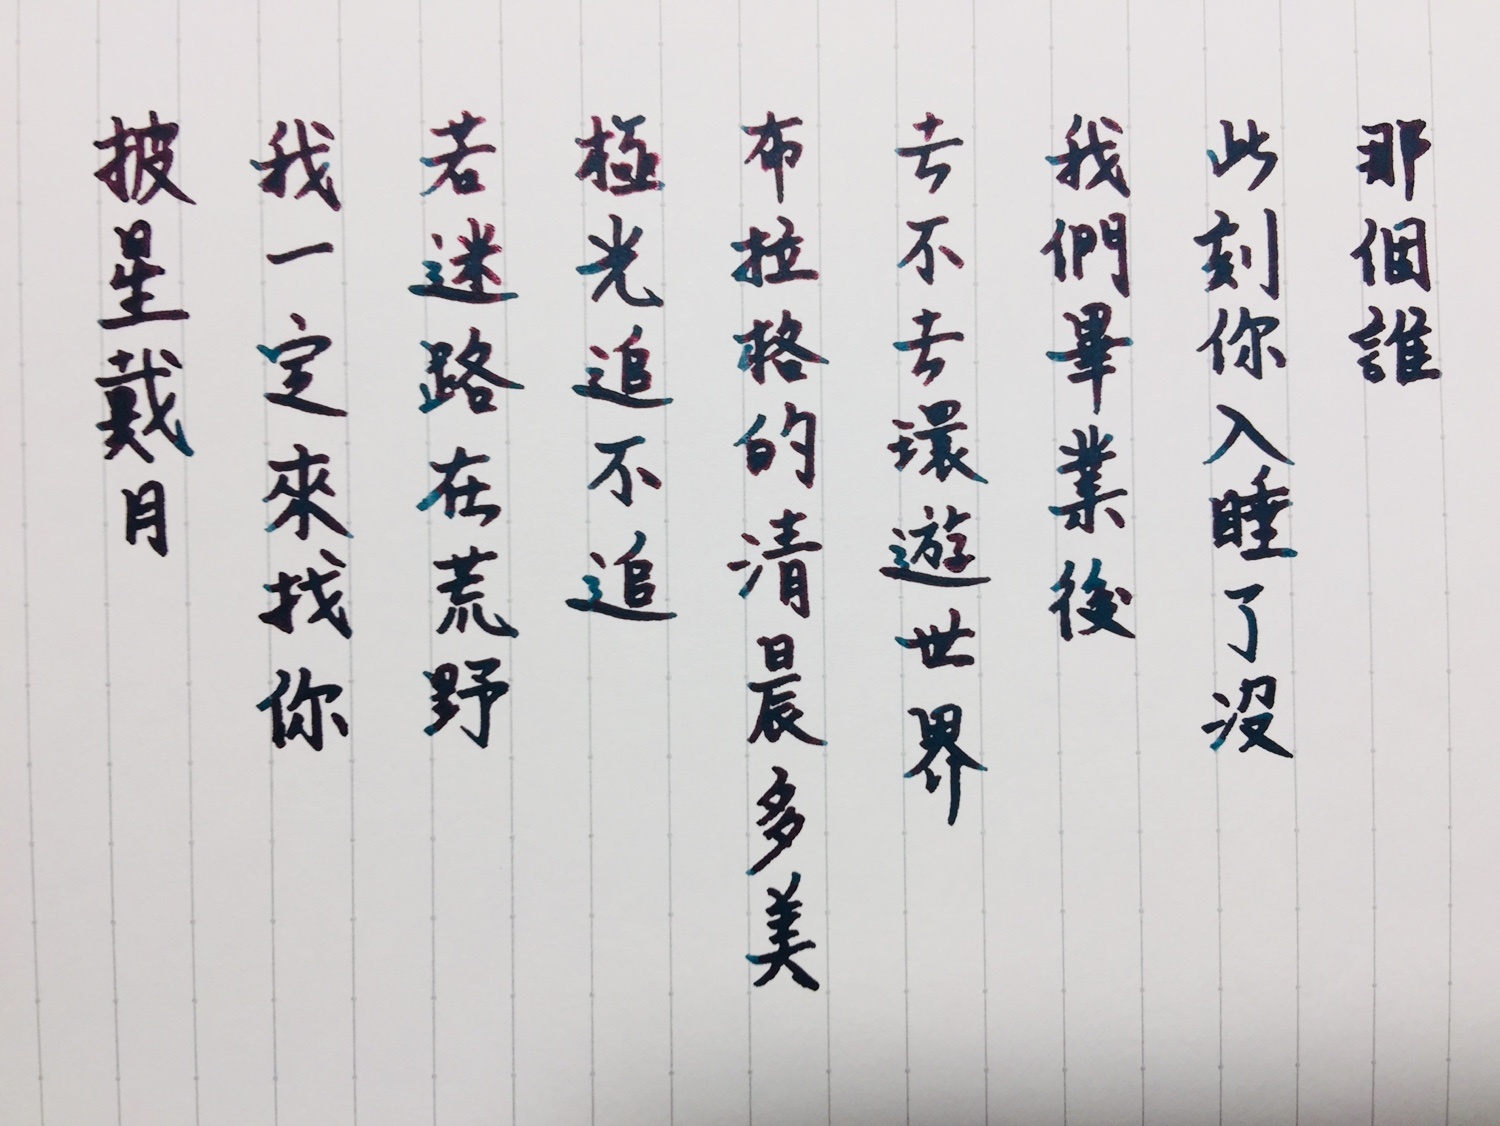 那個誰
此刻你入睡了沒
我們畢業後
去不去環遊世界
布拉格的清晨多美
極光追不追
若迷路在荒野
我一定來找你
披星戴月